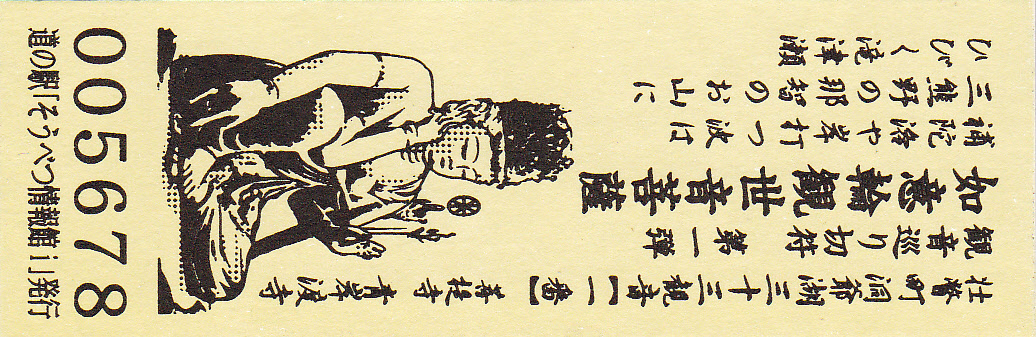 壮瞥町 洞爺湖 三十三観音【一番】 菩提寺 青岸渡寺
観音巡り切符 第一弾
如意輪観世音菩薩
補陀洛や岸打つ波は
三熊野の那智のお山に
ひびく滝津瀬
005678
道の駅「そうべつ情報館i」発行